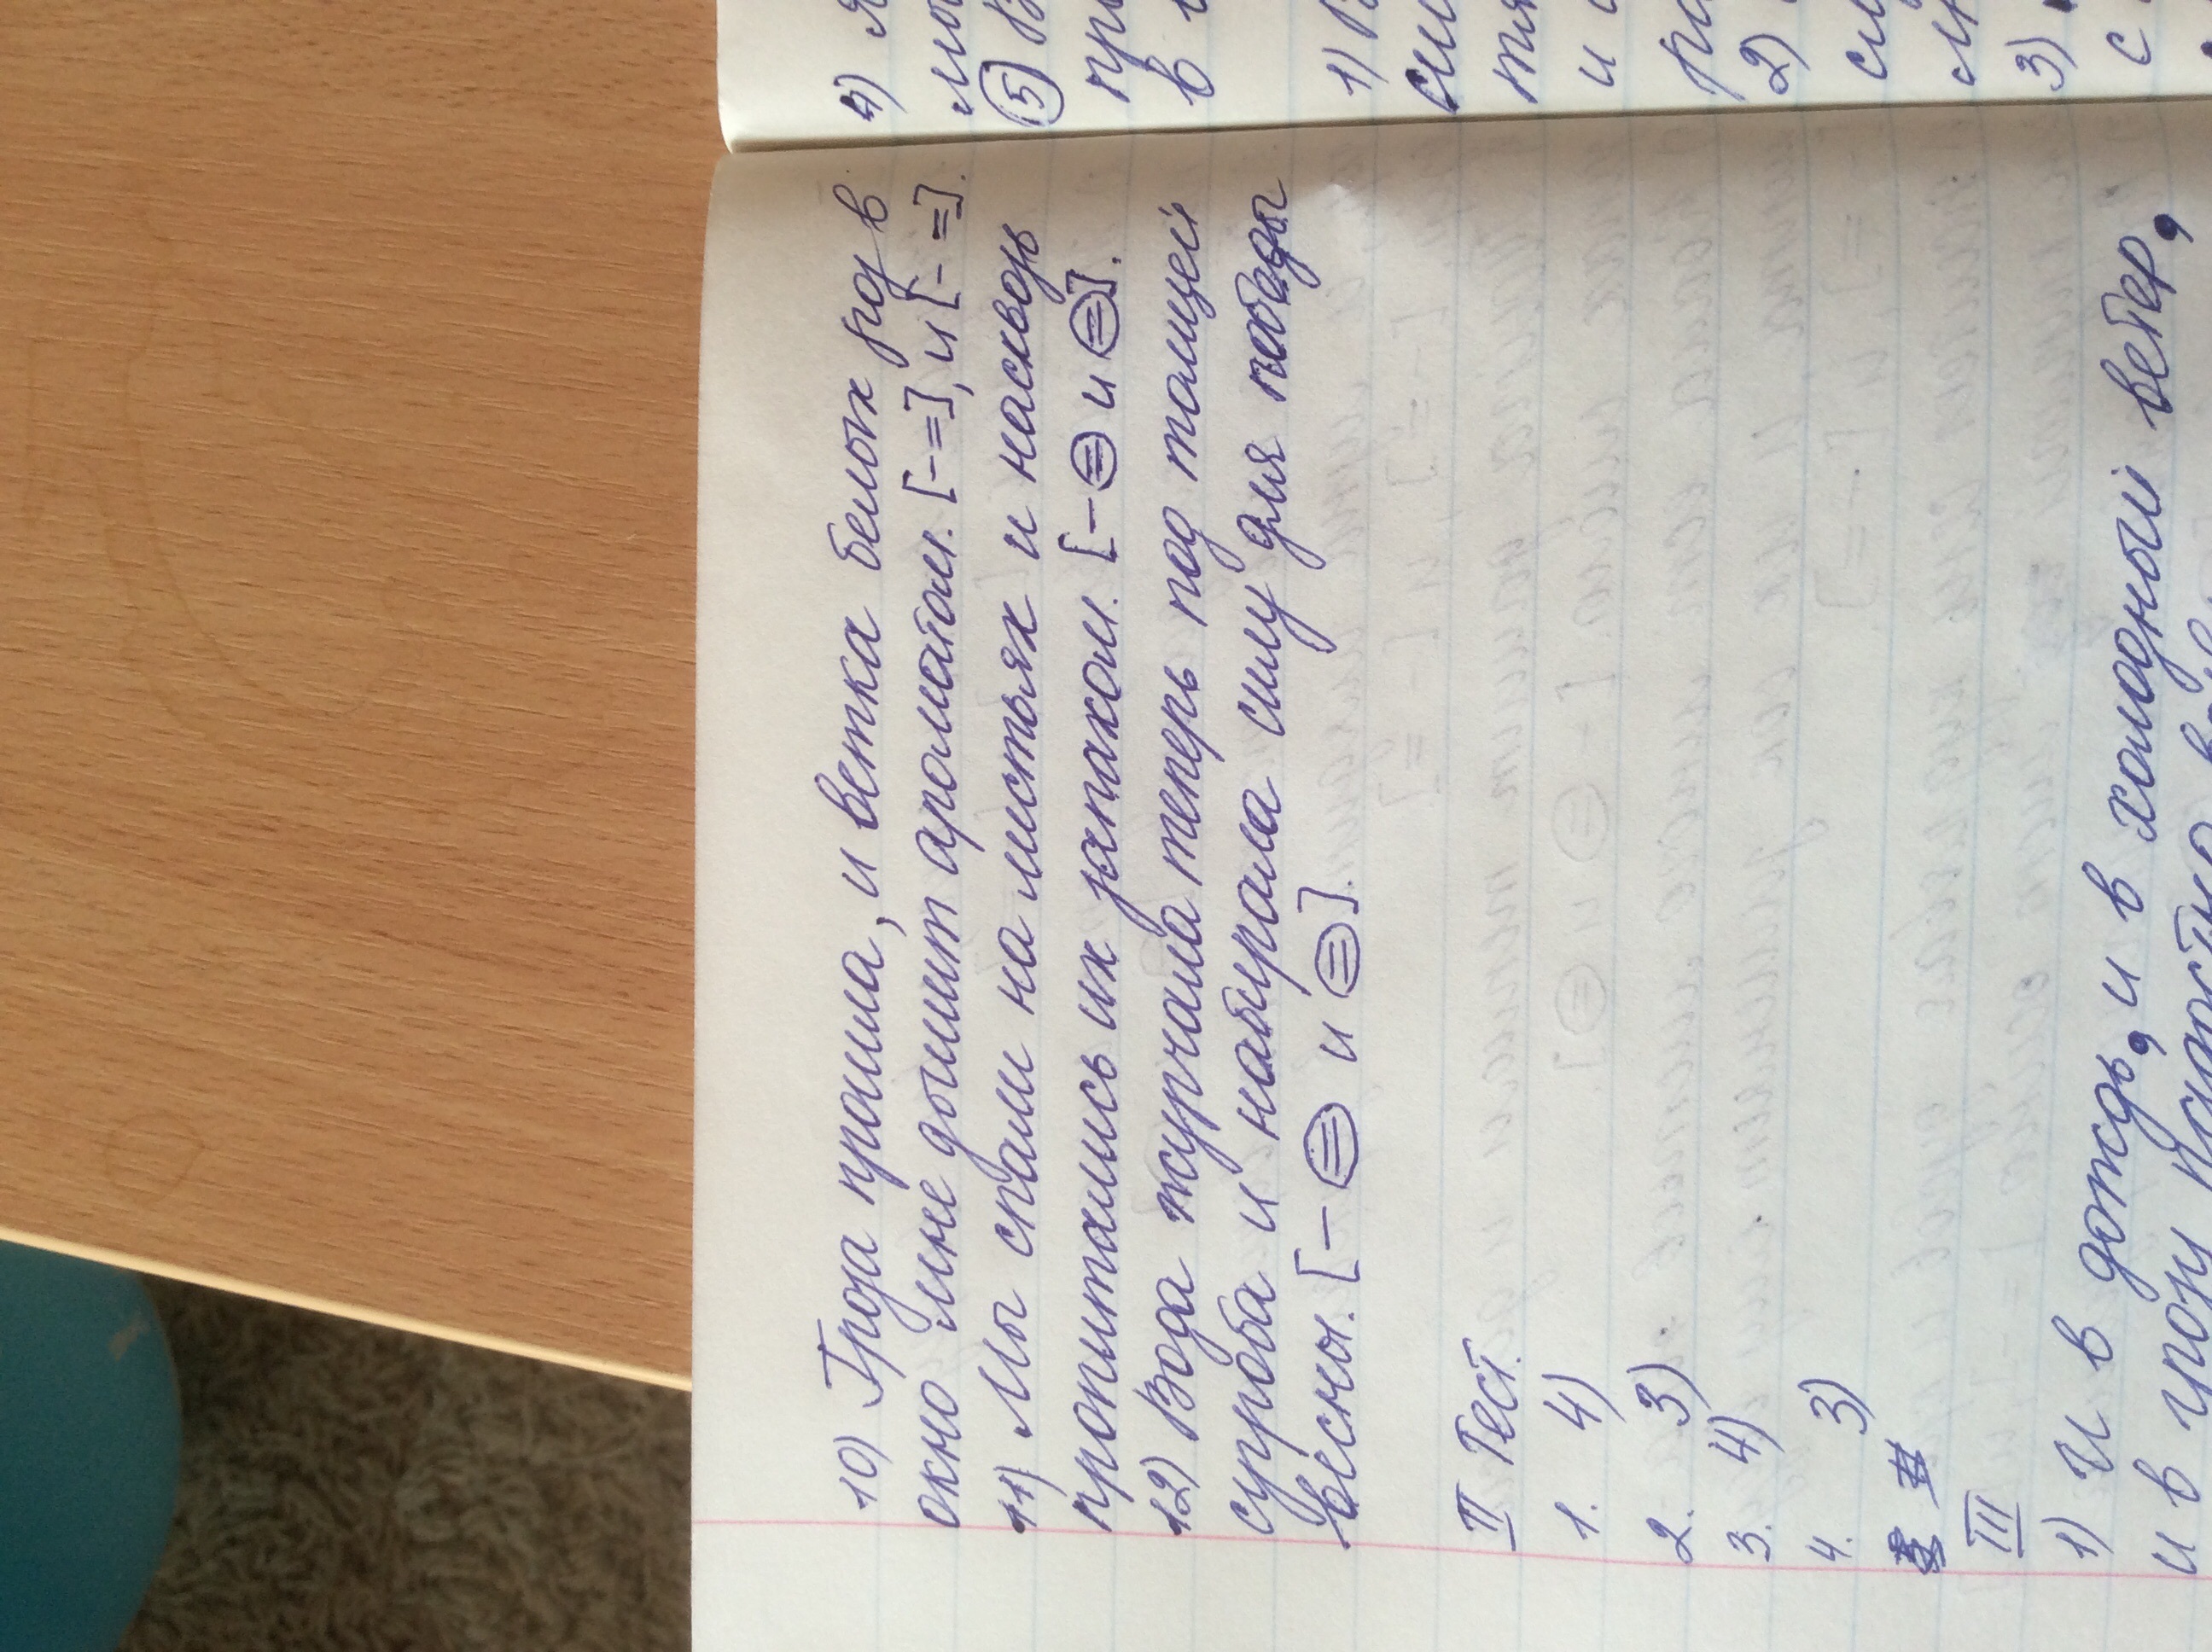 10) Гроза прошла, и ветка белых роз в
окно мне дышит ароматом. [-=], и [-=].
11) Мы спали на листьях и насквозь
пропитались их запахом. [-⊜ и ⊜].
12) Вода журчала теперь под толщей
сугроба и набирала силу для победы
весны. [-⊜ и ⊜].
II Тест.
1. 4)
2. 3)
3. 4)
4. 3)
III
1) И в дождь, и в холодный ветер,
и в
4)
5)
в
1)
и
2)
3)
с